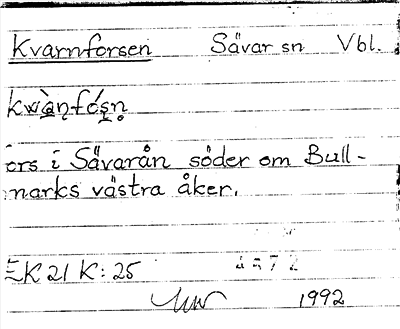 Kvarnforsen Sävar sn Vbl.
ors i Sävarån söder om Bull-
marks västra åker.
EK 21 K: 25
1992